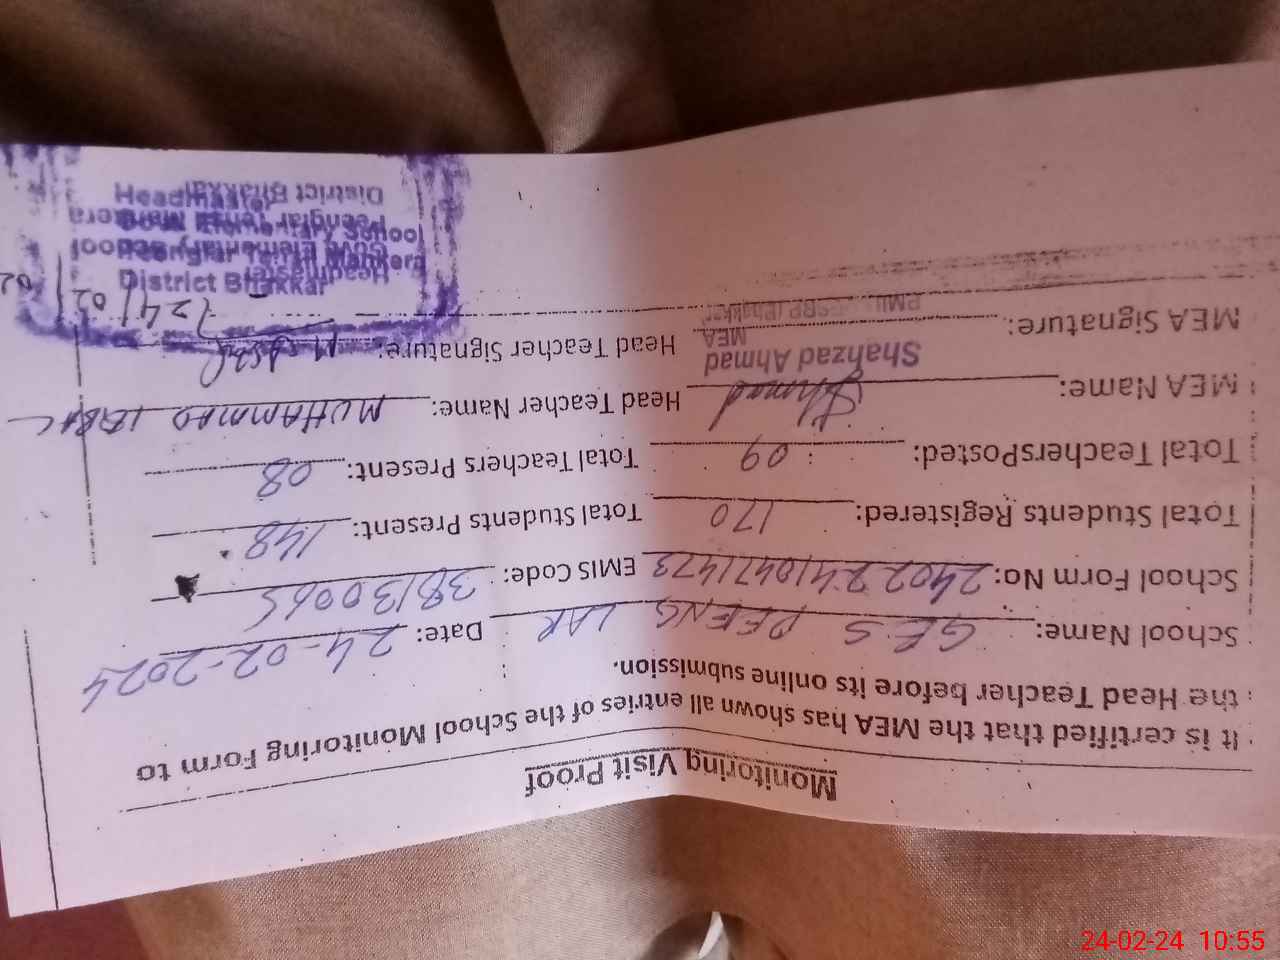 Monitoring Visit Proof
It is certified that the MEA has shown all entries of the School Monitoring Form to
the Head Teacher before its online submission.
School Name: GES PEENG LAR Date: 24-02-2024
School Form No: EMIS Code: 38130065
Total Students Registered: 170 Total Students Present: 148
Total TeachersPosted: 09 Total Teachers Present: 08
MEA Name: Ahmad Head Teacher Name: MUHAMMAD IQBAL
Shahzad Ahmad
MEA
MEA Signature: Head Teacher Signature: M Iqbal
24/02/
Headmaster
Govt Elementary School
Peenglar Tehsil Mankera
District Bhakkar
Headmaster
Govt Elementary School
Peenglar Tehsil Mankera
District Bhakkar
24-02-24 10:55